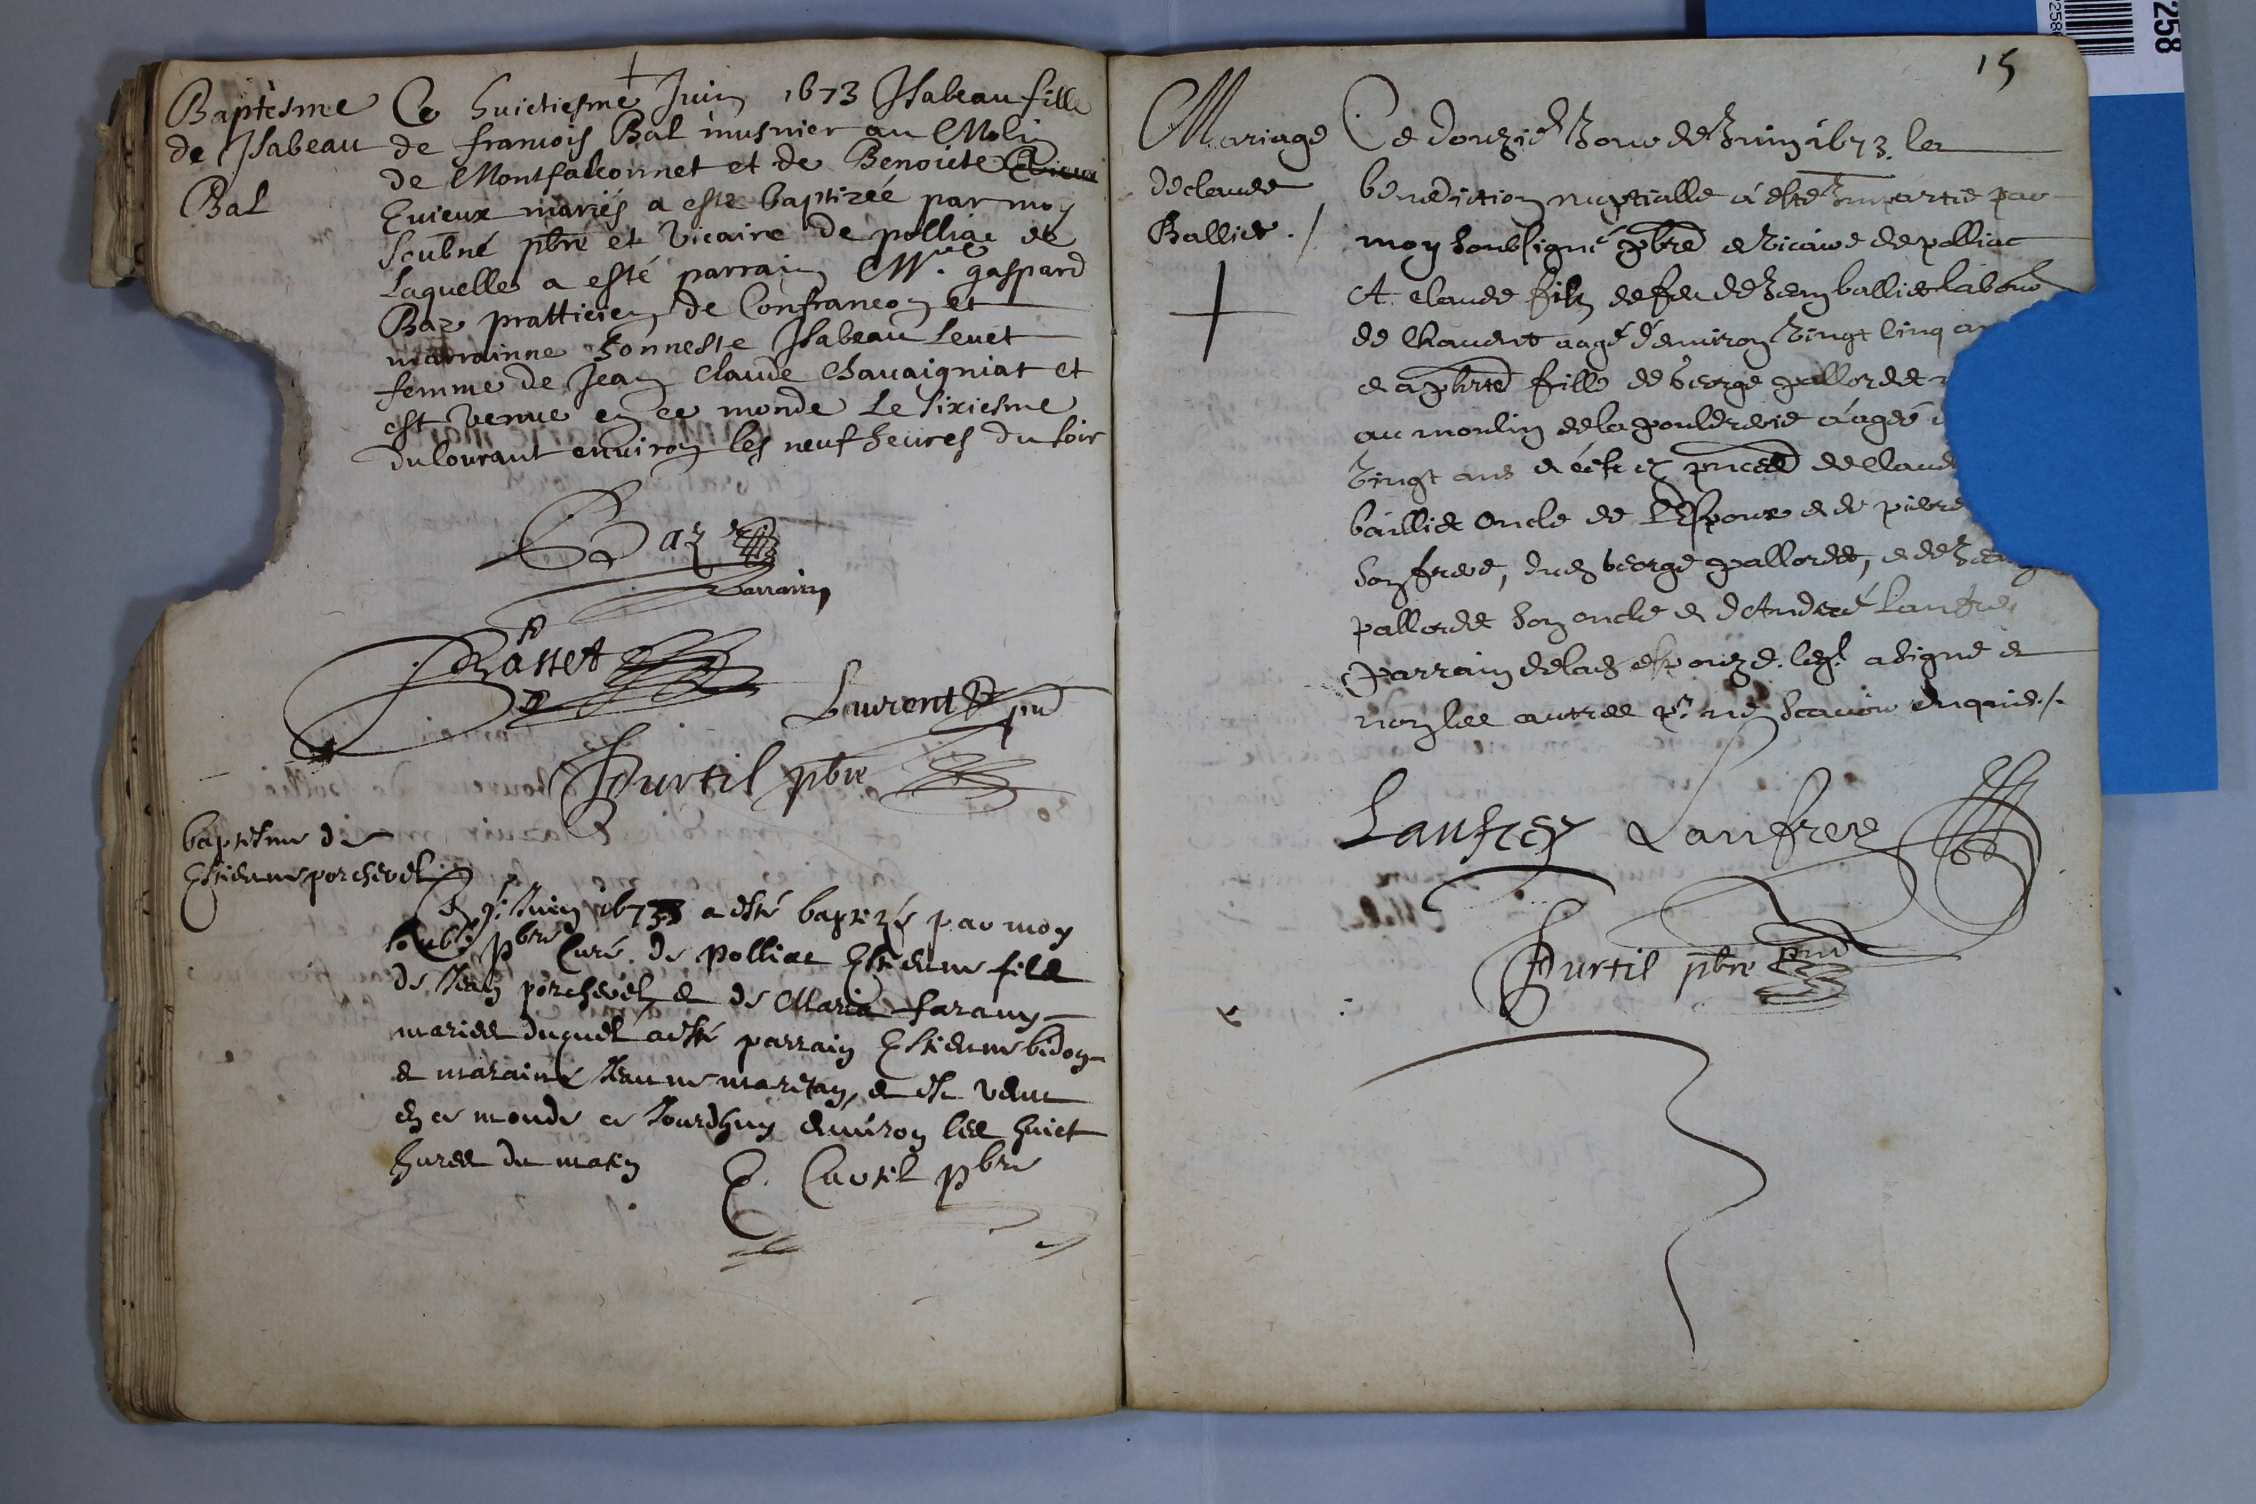 Baptesme
de Isabeau
Bal
Ce huictiesme Juin 1673 Isabeau fille
de francois Bal musnier au Molin
de Montfalconnet et de Benoite
Evieux mariés a este baptizéé par moy
soubné pbre et Vicaire de polliac de
Laquelle a esté parrain Mre gaspard
Baz pratticien de Confrancon et
marrainne honneste Isabeau Levet
femme de Jean Claude Chavaigniat et
est venue en ce monde Le sixiesme
du Courant environ les neuf heures du soir
Baz
parrain
Rasset
Laurent pnt
Burtil pbre
baptesme de
Estienne porchevel
Ce 9e Juin 1673 a esté baptizé par moy
soubsé pbre Curé de polliac Estienne filz
de Jean porchevel et de Maria faramy
mariez duquel a esté parrain Estienne bidon
et maraine Jeanne maretan, et est venu
en ce monde ce Jourdhuy environ les huict
hures du matin
E. Curtil pbre
15
Mariage
de claude
Balliet ./
Ce douzie Jour de Juin 1673. la
benediction nuptialle a esté Impartie par
moy soubsigné pbre et vicaire de polliac
A. claude filz de feu de Jean balliet labour
de Chavent aagé d'environ vingt cinq an
et a pbrte fille de george pallordet
au moulin de la pouldrerie aagéé
vingt ans et ce en pnce de Claude
bailliet oncle de L'Espoux et de pierre
son frere, dud george pallordet, et de Jean
pallordet son oncle et d'André Lanfrey
Parrain de lad espouze. leql a signé et
non les autres pr ne scavoir enquis ./.
Lanfrey Lanfrey
Burtil pbre pnt